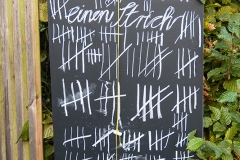 einen Strich